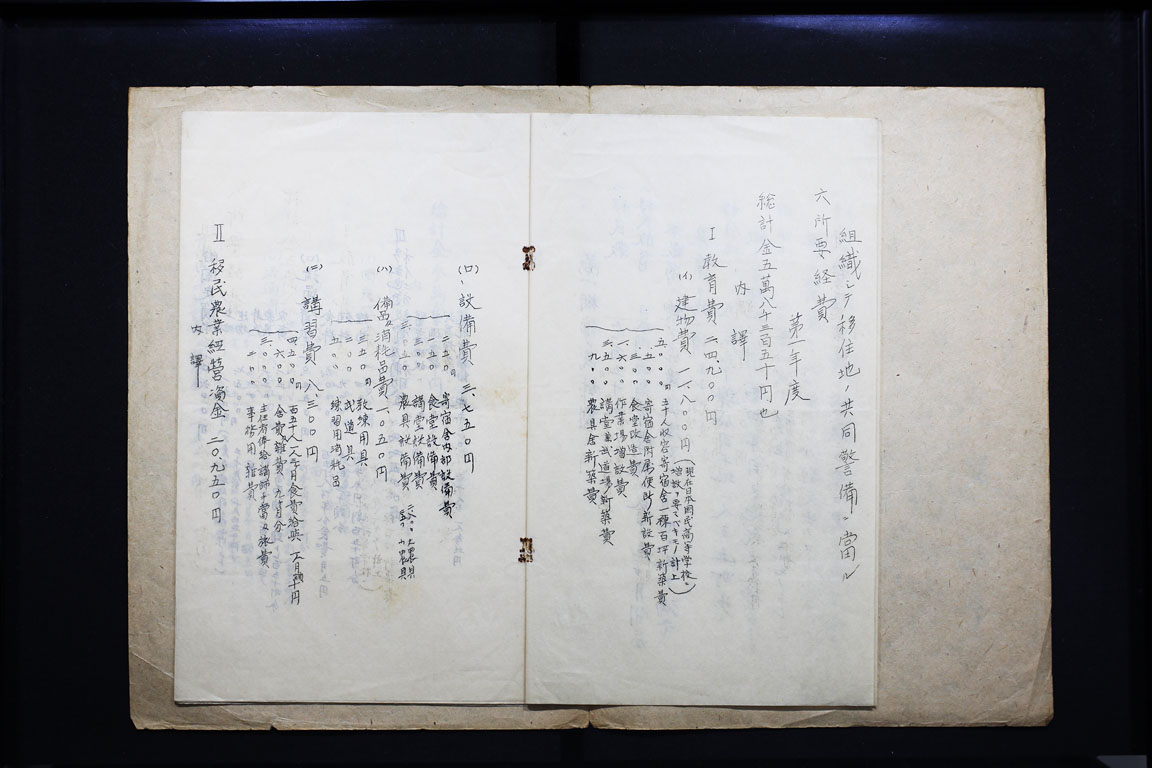 組織シテ移住地ノ共同警備ニ當ル
六所要経費
第一年度
総計金五萬八千三百五十円也
内譯
I 教育費 二四、九〇〇円
(イ) 建物費 一一、八〇〇円
(現在日本國民高等学校ニ
増設ヲ要スベキモノ計上)
五、〇〇〇円 五十人収容寄宿舎一棟百坪新築費
五〇〇 寄宿舎附属便所新設費
三〇〇 食堂改造費
一、六〇〇 作業場増設費
三、五〇〇 講堂兼武道場新築費
九〇〇 農具舎新築費
(ロ)、設備費 三、七五〇円
二五〇円 寄宿舎内部設備費
一五〇 食堂設備費
三〇〇 講堂設備費
三、〇五〇 農具設備費
(ハ) 備品消耗品費 一、〇五〇円
三五〇円 教練用具
二〇〇 武道具
五〇〇 練習用消耗品
(ニ) 講習費 八、三〇〇円
四、五〇〇円
舎費雑費
三、〇〇〇 主任者俸給講師手當及旅費
事務用雑費
II 移民農業經營資金 二〇、九五〇円
内譯